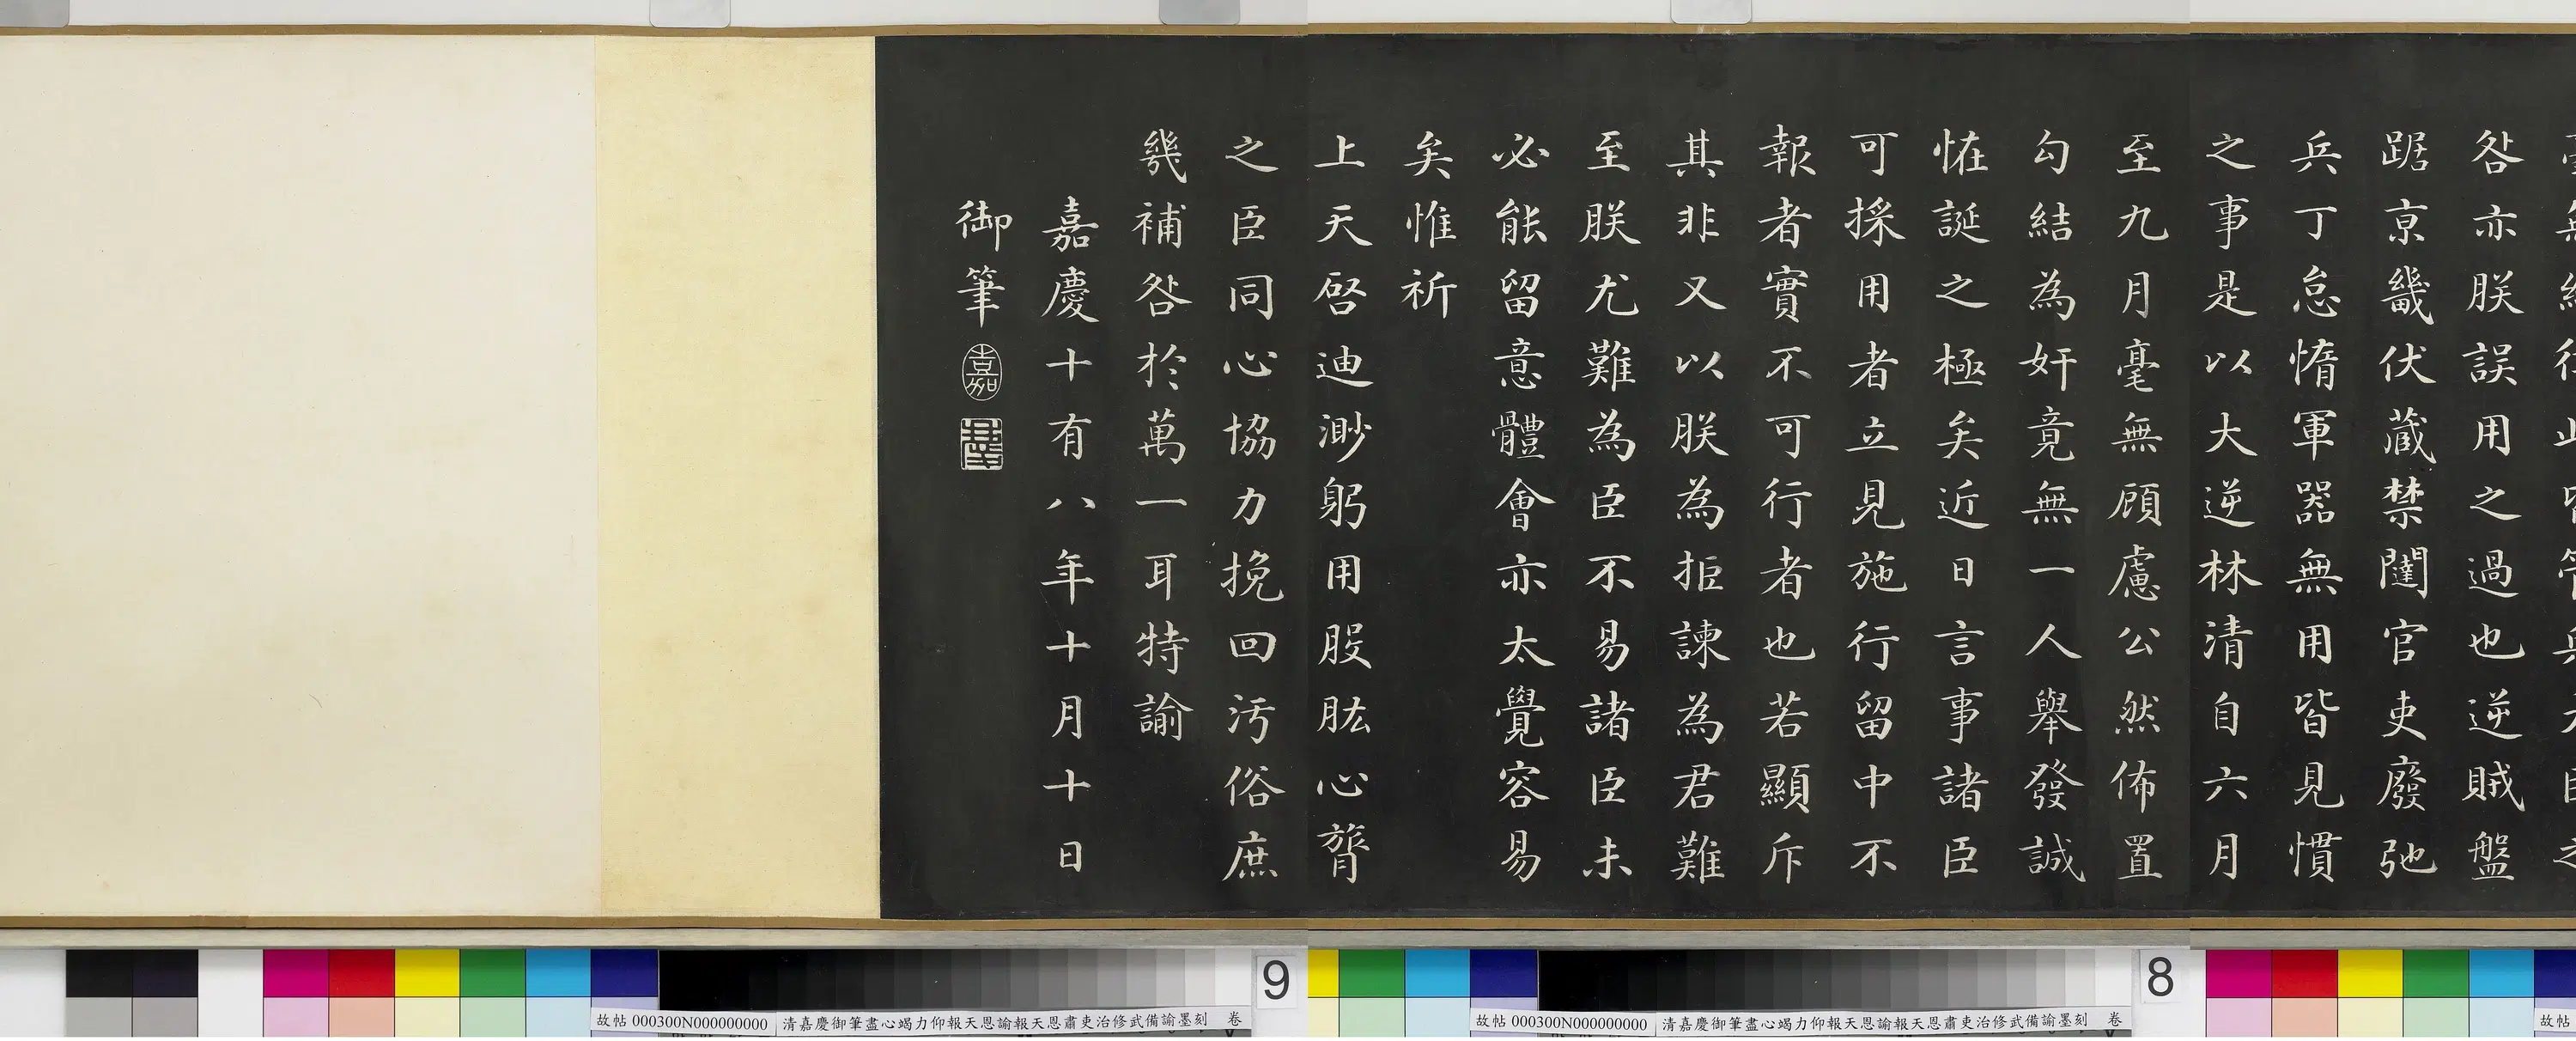 咎亦朕誤用之過也逆賊盤
踞京畿伏藏禁闥官吏廢弛
兵丁怠惰軍器無用皆見慣
之事是以大逆林清自六月
至九月毫無顧慮公然佈置
勾結為奸竟無一人舉發誠
恠誕之極矣近日言事諸臣
可採用者立見施行留中不
報者實不可行者也若顯斥
其非又以朕為拒諫為君難
至朕尤難為臣不易諸臣未
必能留意體會亦太覺容易
矣惟祈
上天啓迪渺躬用股肱心膂
之臣同心協力挽回污俗庶
幾補咎於萬一耳特諭
嘉慶十有八年十月十日
御筆
嘉
9
8
故帖 000300N000000000 清嘉慶御筆盡心竭力仰報天恩諭報天恩肅吏治修武備諭墨刻 卷
故帖 000300N000000000 清嘉慶御筆盡心竭力仰報天恩諭報天恩肅吏治修武備諭墨刻 卷
故帖